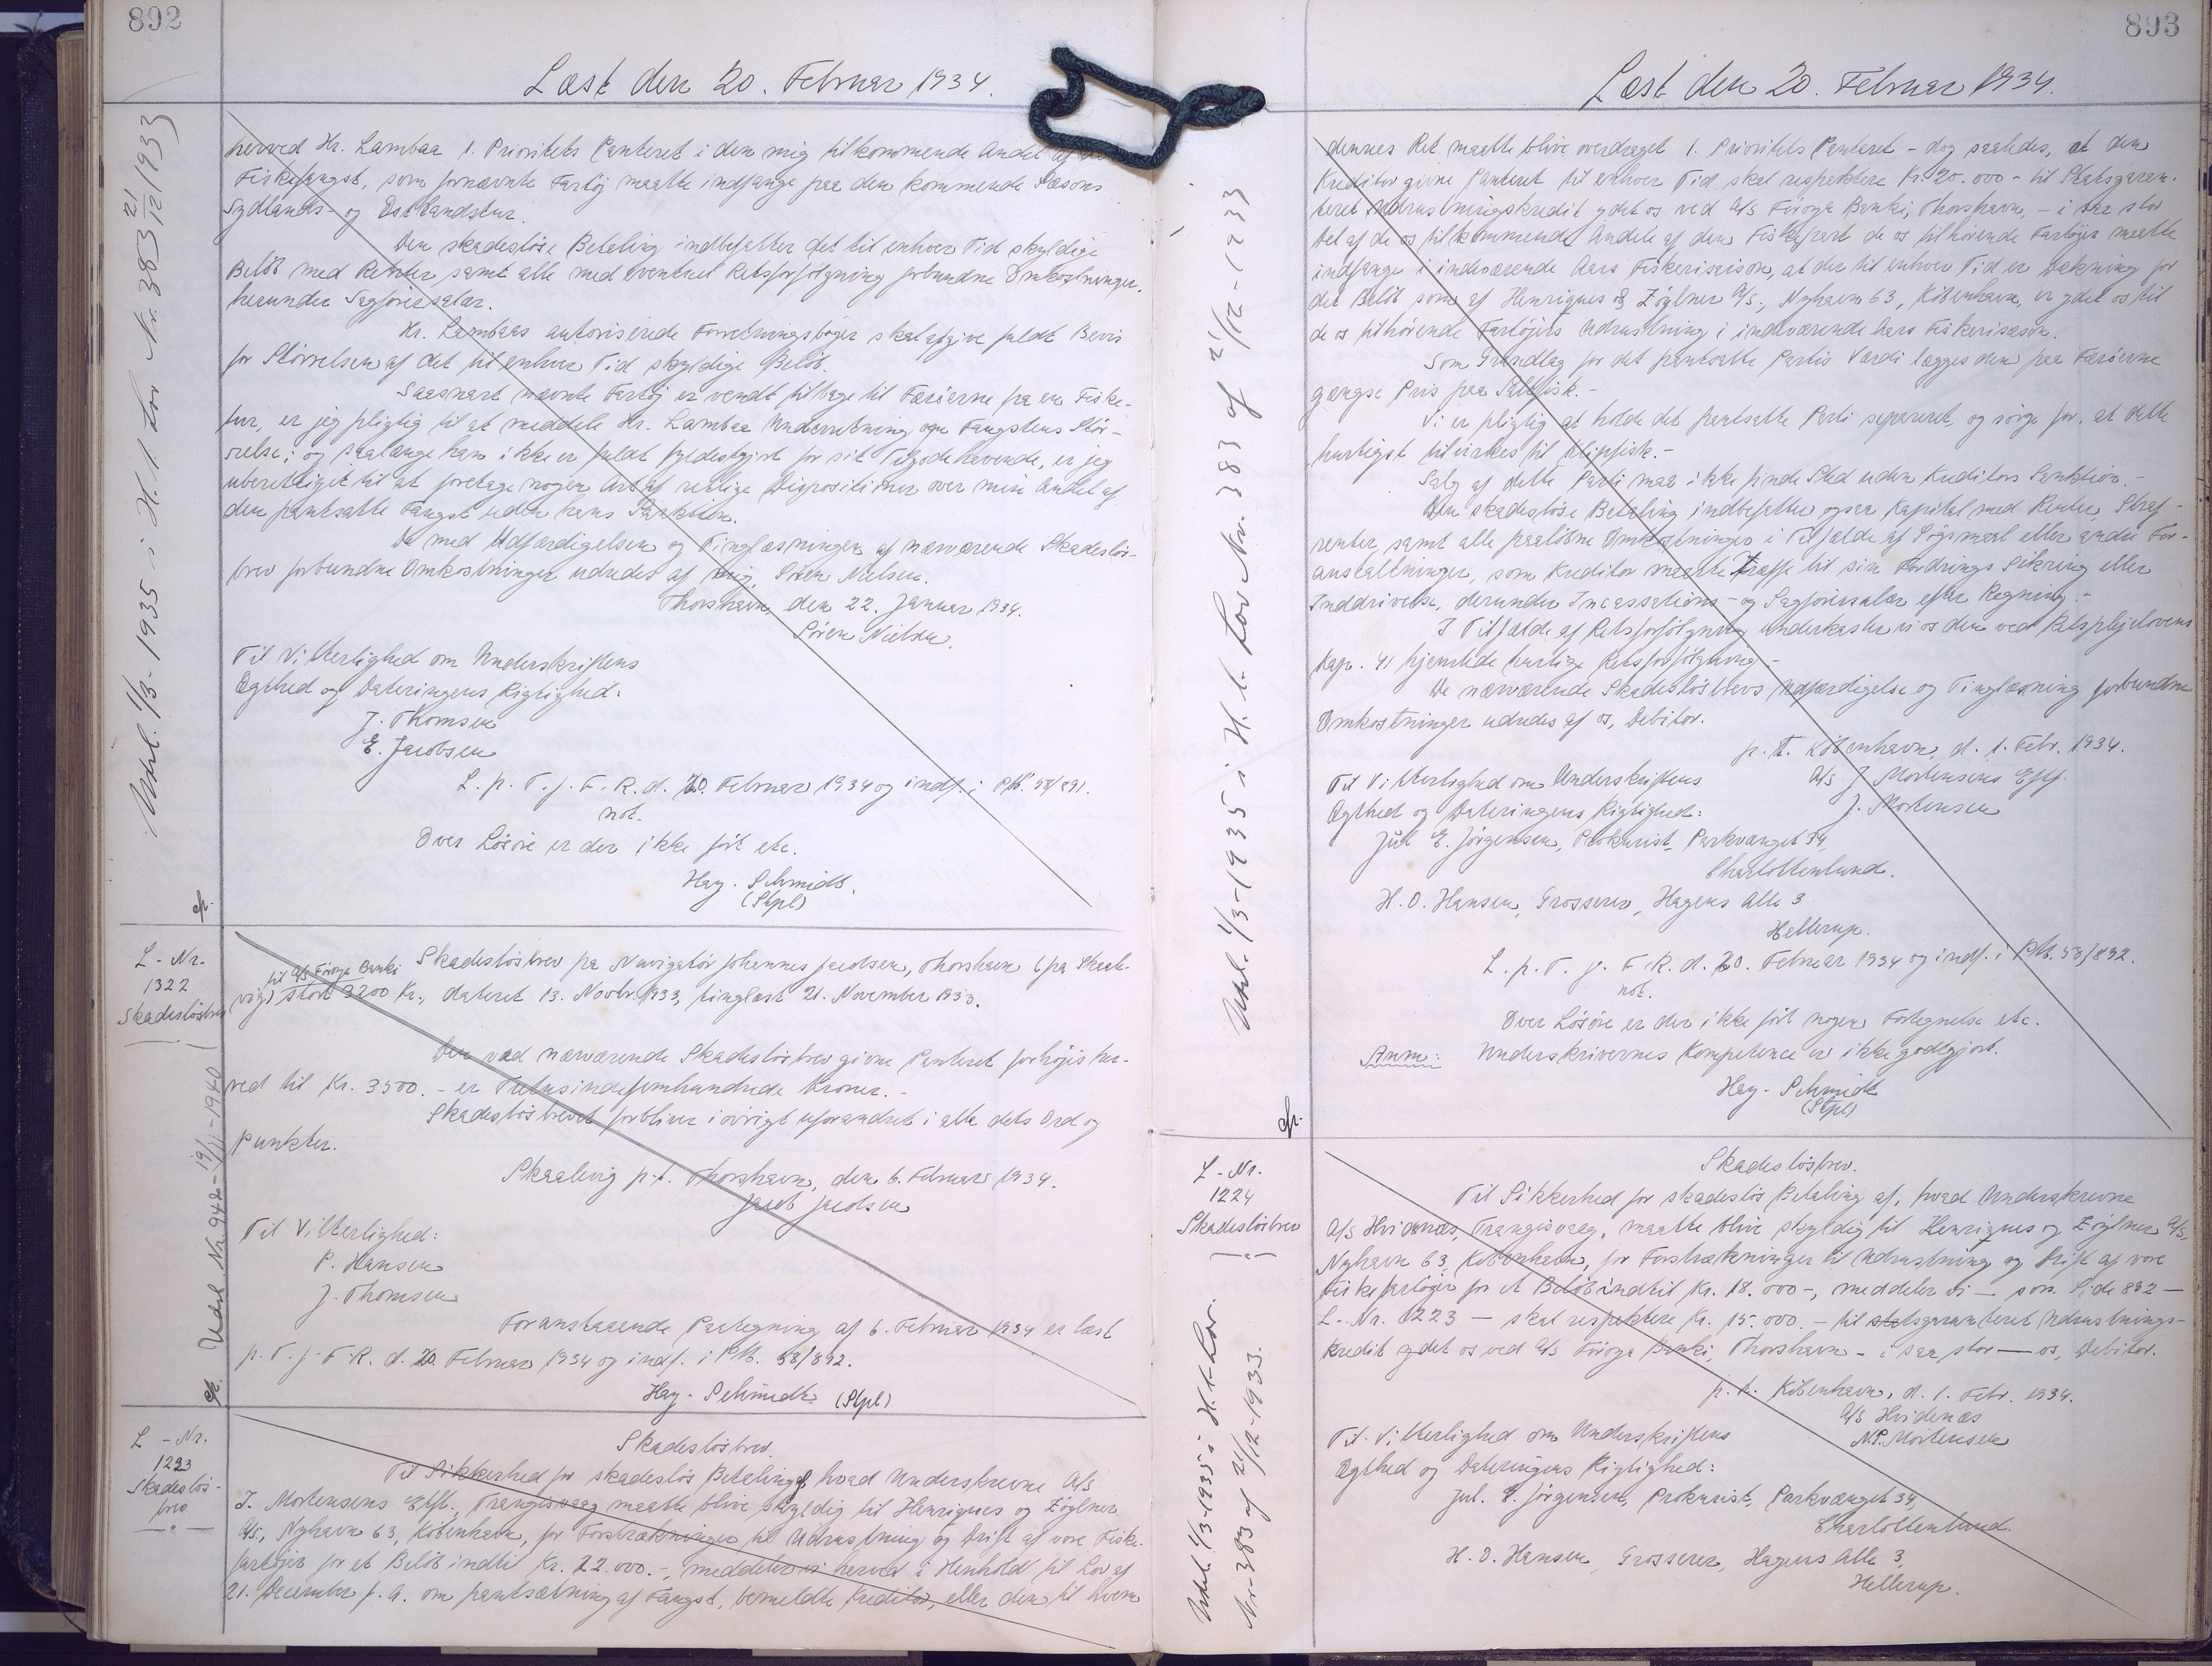 892
Læst den 20. Februar 1934.
herved Hr. Lambaa 1. Prioritets Panteret i den mig tilkommende Andel af
Fiskefangst, som fornævnte Fartöj maatte indfange paa den kommende Sæsons
Sydlands- og Östlandstur.
Den skadeslöse Betaling indbefatter det til enhver Tid skyldige
Belöb med Renter samt alle med eventuel Retsforfölgning forbundne Omkostninger,
herunder Sagförersalær.
Hr. Lambaas autoriserede Forretningsböger skal afgive fuldt Bevis
for Störrelsen af det til enhver Tid skyldige Belöb.
Saasnart nævnte Fartöj er vendt tilbage til Færöerne fra en Fiske-
tur, er jeg pligtig til at meddele Hr. Lambaa Underretning om Fangstens Stör-
relse; og saalænge han ikke er fuldt fyldestgjort for sit Tilgodehavende, er jeg
uberettiget til at foretage nogen Art af retlige Dispositioner over min Andel af
den pantsatte Fangst uden hans Sanktion.
De med Udfærdigelsen og Tinglæsningen af nærværende Skadeslös-
brev forbundne Omkostninger udredes af mig, Sören Nielsen.
Thorshavn, den 22. Januar 1934.
Sören Nielsen.
Til Vitterlighed om Underskriftens
Ægthed og Dateringens Rigtighed:
J. Thomsen
E. Jacobsen
L. p. T. f. F. R. d. 20. Februar 1934 og indf. i Ptb. 58/891.
not.
Over Lösöre er der ikke fört etc.
Hay-Schmidt.
(Stpl)
Udsl. 1/3-1935 i H. t. Lov Nr. 383 21/12 1933
cfr.
L-Nr.
1322
Skadeslösbrev
Skadeslösbrev fra Navigatör Johannes Jacobsen, Thorshavn (fra Skaale-
til A/S Föroya Banki
vig) stort 3200 Kr., dateret 13. Novbr. 1933, tinglæst 21. November 1933.
Den ved nærværende Skadeslösbrev givne Panteret forhöjes her-
ved til Kr. 3500.- er Tretusindefemhundrede Kroner.-
Skadeslösbrevet forbliver i övrigt uforandret i alle dets Ord og
Punkter.
Skaalevig p.t. Thorshavn, den 6. Februar 1934.
Jacob Jacobsen
Til Vitterlighed:
P. Hansen
J. Thomsen
Foranstaaende Paategning af 6. Februar 1934 er læst
p. T. f. F. R. d. 20. Februar 1934 og indf. i Ptb. 58/892.
Hay-Schmidt (Stpl)
Udsl. Nr. 942-19/11-1940
cfr.
L-Nr.
1223
Skadeslös-
brev
Skadeslösbrev.
Til Sikkerhed for skadeslös Betaling af, hvad Underskrevne A/S
J. Mortensens Eftf., Trangisvaag maatte blive skyldig til Henriques og Zöylner
A/S, Nyhavn 63, Köbenhavn, for Forstrækninger til Udrustning og Drift af vore Fiske-
fartöjer for et Belöb indtil Kr. 22.000.-, meddeler vi herved i Henhold til Lov af
21. December f. A. om pantsætning af Fangst, bemeldte Kreditor, eller den til hvem
893
Læst den 20. Februar 1934.
dennes Ret maatte blive overdraget 1. Prioritets Panteret - dog saaledes, at den
Kreditor givne Panteret til enhver Tid skal respektere Kr. 20.000 - til Statsgaran-
teret Udrustningskredit ydet os ved A/S Föroya Banki, Thorshavn, - i saa stor
Del af de os tilkommende Andele af den Fiskefangst de os tilhörende Fartöjer maatte
indfange i indeværende Aars Fiskerisæson, at der til enhver Tid er Dækning for
det Belöb som af Henriques & Zöylner A/S., Nyhavn 63, Köbenhavn, er ydet os til
de os tilhörende Fartöjers Udrustning i indeværende Aars Fiskerisæson.
Som Grundlag for det pantsatte Partis Værdi lægges den paa Færöerne
gængse Pris paa Saltfisk.-
Vi er pligtig at holde det pantsatte Parti separeret, og sörge for, at dette
hurtigst tilvirkes til Klipfisk.-
Salg af dette Parti maa ikke finde Sted uden Kreditors Sanktion.-
Den skadeslöse Betaling indbefatter ogsaa Kapital med Renter, Straf-
renter, samt alle paalöbne Omkostninger i Tilfælde af Sögsmaal eller andre For-
anstaltninger, som Kreditor maatte træffe til sin Fordrings Sikring eller
Inddrivelse, derunder Incassations- og Sagförersalær efter Regning.-
I Tilfælde af Retsforfölgning underkaster vi os den ved Retsplejelovens
Kap. 41 hjemlede hurtige Retsforfölgning.-
De nærværende Skadeslösbrevs Udfærdigelse og Tinglæsning forbundne
Omkostninger udredes af os, Debitor.
p. t. Köbenhavn, d. 1. Febr. 1934.
A/S J. Mortensens Eftf.
J. Mortensen
Til Vitterlighed om Underskriftens
Ægthed og Dateringens Rigtighed:
Jul. E. Jörgensen, Prokurist, Parkvænget 34,
Charlottenlund.
H. O. Hansen, Grosserer, Hagens Alle 3
Hellerup.
L. p. T. f. F. R. d. 20. Februar 1934 og indf. i Ptb. 58/892.
not.
Over Lösöre er der ikke fört nogen Fortegnelse etc.
Anm: Underskrivernes Kompetence er ikke godtgjort.
Hay-Schmidt
(Stpl)
Udsl. 1/3-1935 i H. t. Lov Nr. 383 af 21/12-1933
cfr.
L-Nr.
1224
Skadeslösbrev
Skadeslösbrev.
Til Sikkerhed for skadeslös Betaling af, hvad Underskrevne
A/S Hvidenæs, Trangisvaag, maatte blive skyldig til Henriques og Zöylner A/S,
Nyhavn 63, Köbenhavn, for Forstrækninger til Udrustning og Drift af vore
Fiskefartöjer for et Belöb indtil Kr. 18.000-, meddeler vi — som Side 892 —
L.-Nr. 1223 — skal respektere Kr. 15.000.- til statsgaranteret Udrustnings-
kredit ydet os ved A/S Föroya Banki, Thorshavn - i saa stor — os, Debitor.
p. t. Köbenhavn, d. 1. Febr. 1934.
A/S Hvidenæs
N.P. Mortensen
Til Vitterlighed om Underskriftens
Ægthed og Dateringens Rigtighed:
Jul. E. Jörgensen, Prokurist, Parkvænget 34,
Charlottenlund.
H. O. Hansen, Grosserer, Hagens Alle 3,
Hellerup.
Udsl. 1/3-1935 i H. t. Lov.
Nr-383 af 21/12-1933.